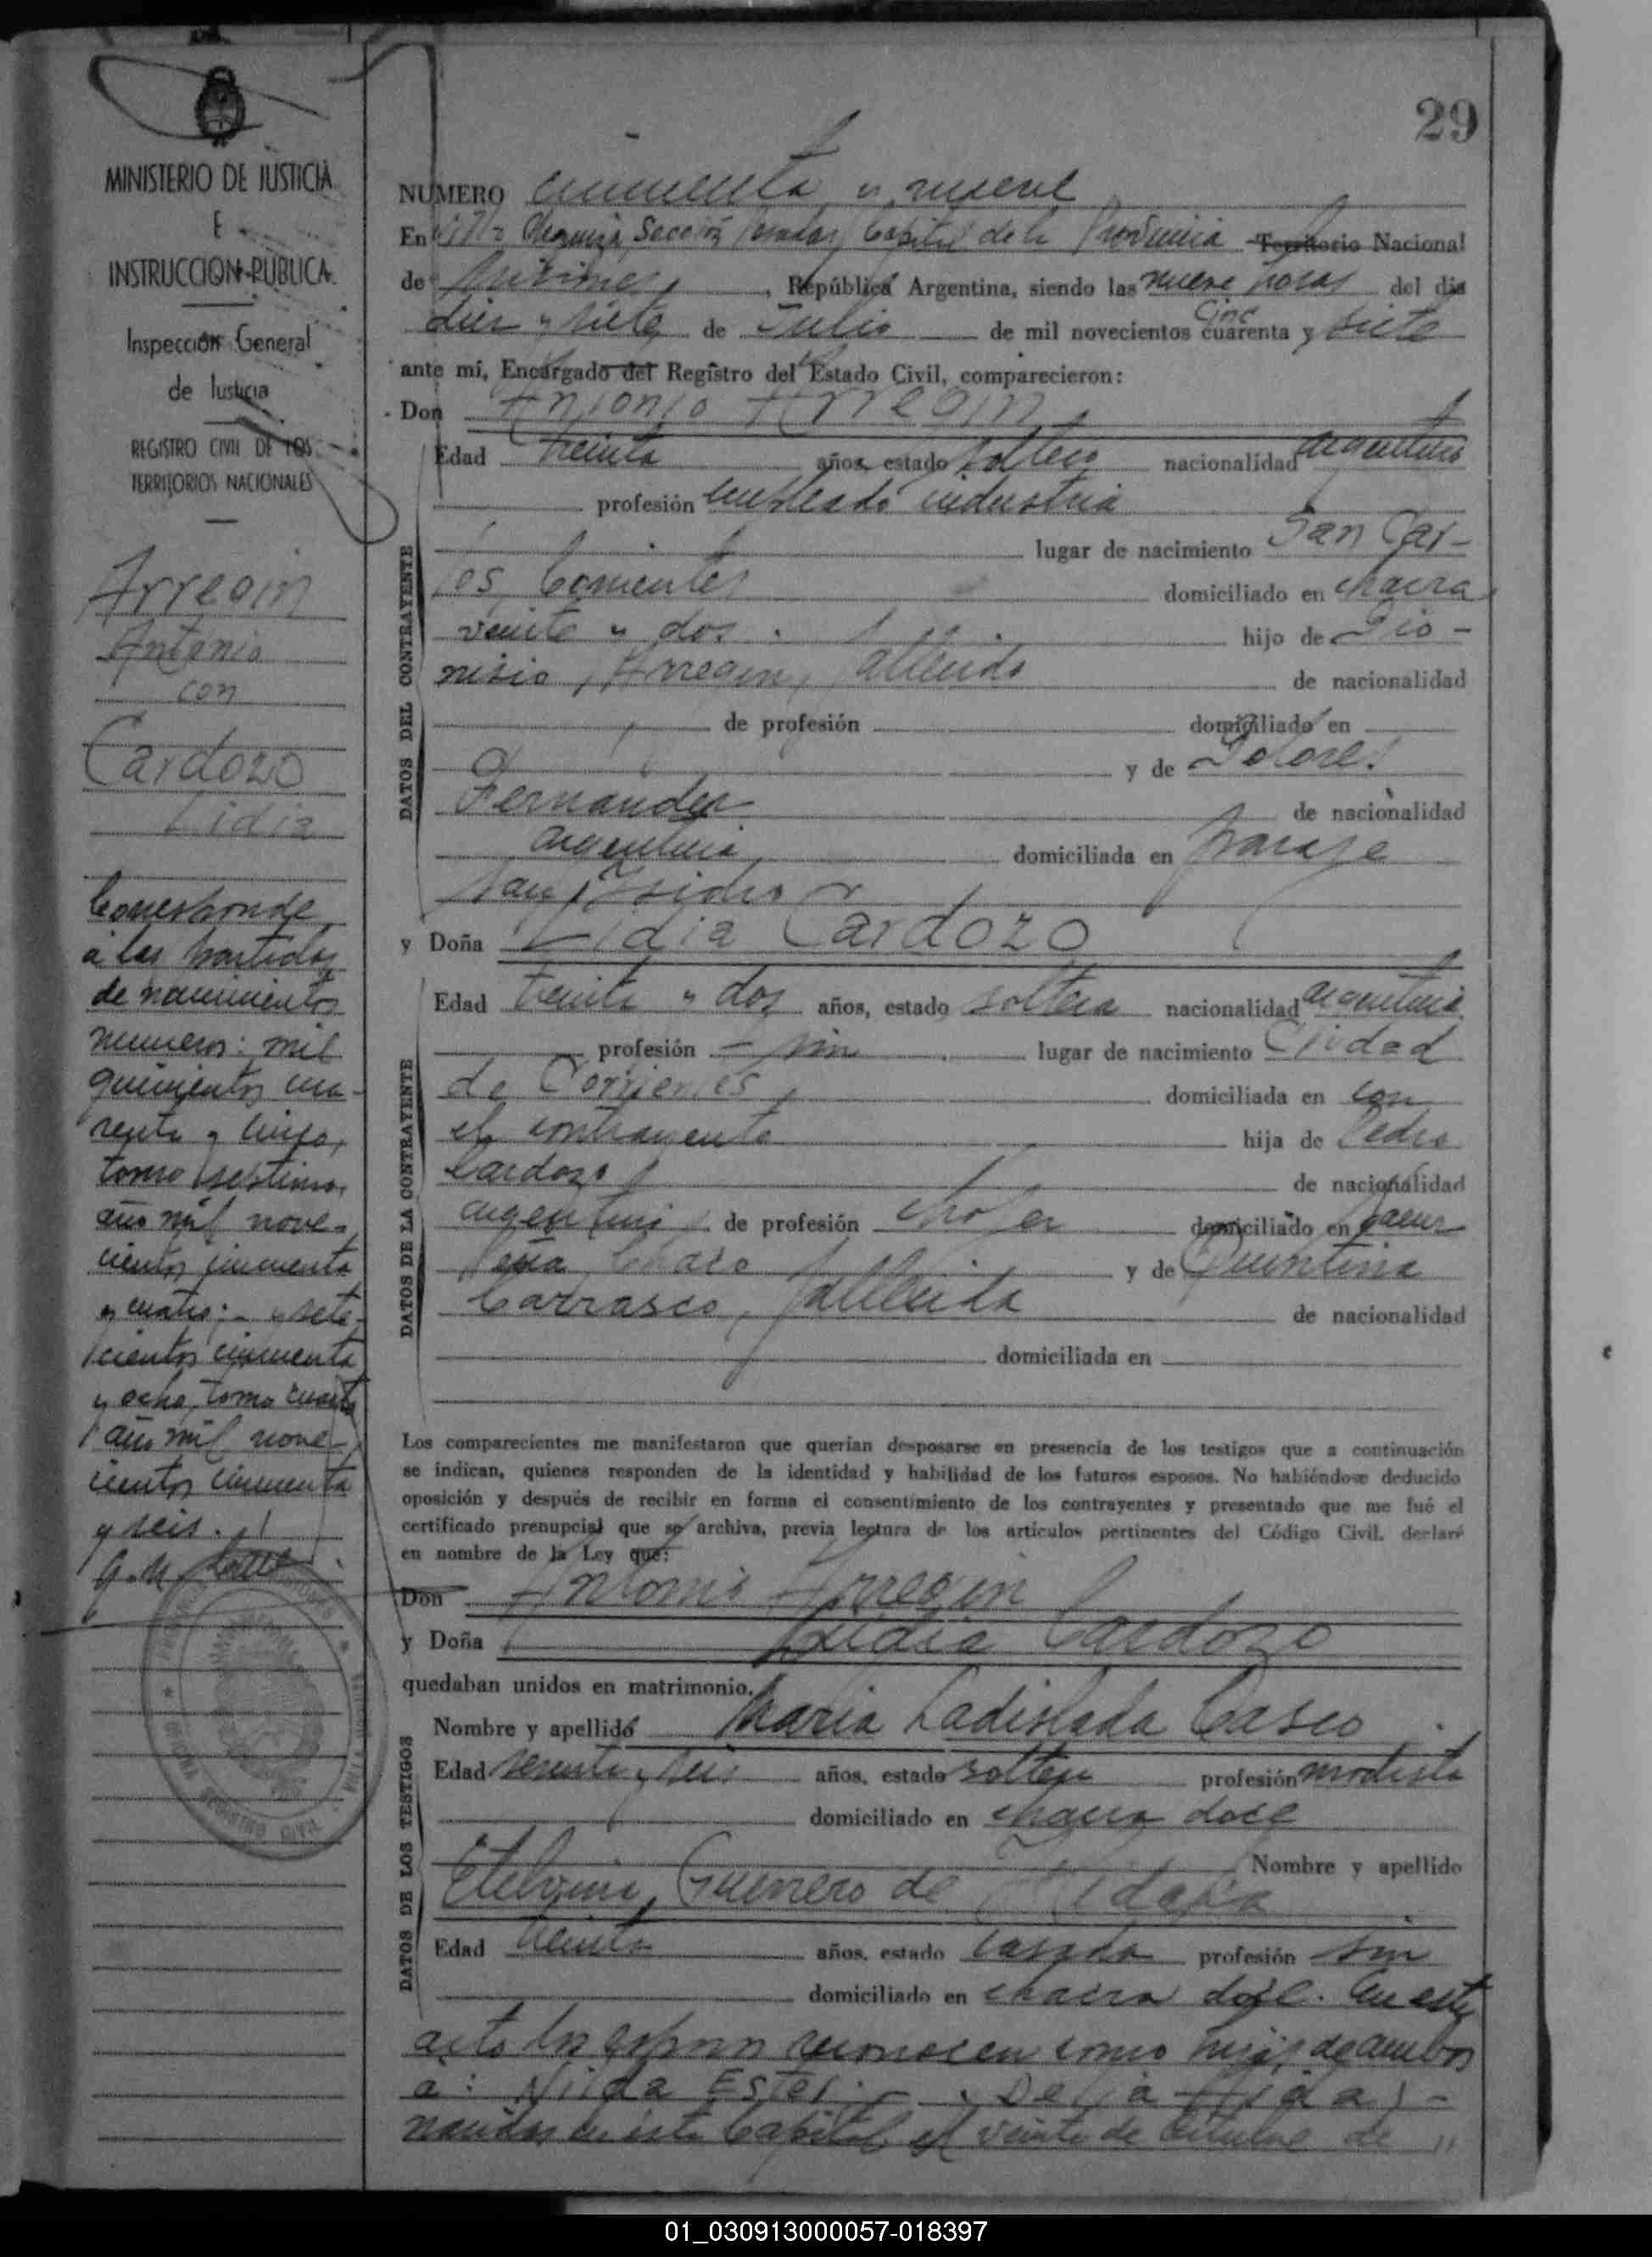 29
MINISTERIO DE JUSTICIA
E
INSTRUCCION PUBLICA
Inspección General
de Justicia
REGISTRO CIVIL DE LOS
TERRITORIOS NACIONALES
Arregin
Antonio
con
Cardozo
Lidia
Corresponde
a las partidas
de nacimientos
numeros: mil
quinientos cua-
renta y cinco,
tomo septimo,
año mil nove-
cientos cincuenta
y cuatro; - y sete-
cientos cincuenta
y ocho, tomo cuarto
año mil nove-
cientos cincuenta
y seis.
NUMERO cincuenta y nueve
En Sección Posadas Capital de la Provincia Territorio Nacional
de Misiones, República Argentina, siendo las nueve horas del dia
diez y siete de Julio de mil novecientos cuarenta cinc y siete
ante mí, Encargado del Registro del Estado Civil, comparecieron:
Don Antonio Arregin
Edad treinta años, estado soltero nacionalidad argentino
profesión empleado industria
lugar de nacimiento San Car-
los, Corrientes domiciliado en chacra
veinte y dos. hijo de Dio-
nisio Arregin, fallecido de nacionalidad
de profesión domiciliado en
y de Dolores
Fernandez de nacionalidad
argentina domiciliada en paraje
San Isidro
y Doña Lidia Cardozo
Edad treinta y dos años, estado soltera nacionalidad argentina
profesión - sin lugar de nacimiento Ciudad
de Corrientes domiciliada en con
el contrayente hija de Pedro
Cardozo de nacionalidad
argentino de profesión chofer domiciliado en Saenz
Peña Chaco y de Quintina
Carrasco, fallecida de nacionalidad
domiciliada en
DATOS DEL CONTRAYENTE
DATOS DE LA CONTRAYENTE
Los comparecientes me manifestaron que querían desposarse en presencia de los testigos que a continuación
se indican, quienes responden de la identidad y habilidad de los futuros esposos. No habiéndose deducido
oposición y después de recibir en forma el consentimiento de los contrayentes y presentado que me fué el
certificado prenupcial que se archiva, previa lectura de los artículos pertinentes del Código Civil, declaré
en nombre de la Ley que:
Don Antonio Arregin
y Doña Lidia Cardozo
quedaban unidos en matrimonio.
DATOS DE LOS TESTIGOS
Nombre y apellido Maria Ladislada Casco
Edad y seis años, estado soltera profesión modista
domiciliado en chacra doce
Nombre y apellido
Etelvina Guerrero de
Edad treinta años, estado casada profesión sin
domiciliado en chacra doce. En este
acto los esposos reconocen como hijas de ambos
a: Nilda Ester; - y Delia Aida; -
nacidas en esta Capital el veinte de Octubre de "
REGISTRO CIVIL
01_030913000057-018397